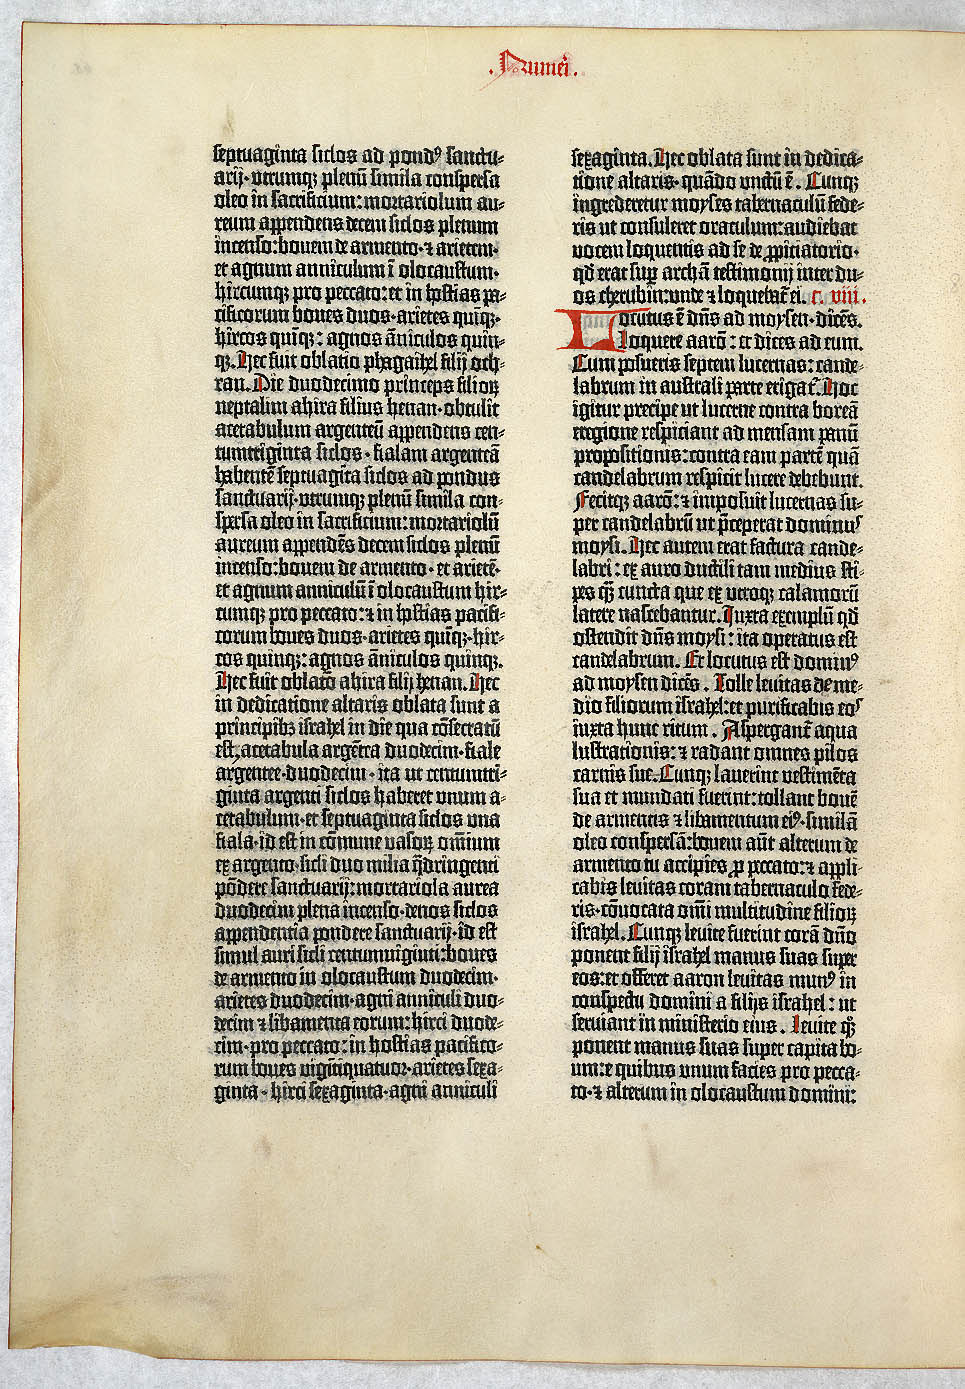 .Numeri.
septuaginta siclos ad pondꝰ sanctu-
arij·vtrumqꝫ plenū simila conspersa
oleo in sacrificium: mortariolum au-
reum appendens decem siclos plenum
incenso: bouem de armento·⁊ arietem·
et agnum anniculum ī olocaustum·
hircumqꝫ pro peccato: et in hostias pa-
cificorum boues duos·arietes quīqꝫ·
hircos quīqꝫ: agnos āniculos quin-
qꝫ. Hec fuit oblatio phagaihel filij och-
ran. Die duodecimo princeps filioꝝ
neptalim ahira filius henan·obtulit
acetabulum argenteū appendens cen-
tumtriginta siclos·fialam argenteā
habentē septuagīta siclos ad pondus
sanctuarij·vtrumqꝫ plenū simila con-
spersa oleo in sacrificium: mortariolū
aureum appendēs decem siclos plenū
incenso: bouem de armento·et arietē·
et agnum anniculū ī olocaustum hir-
cumqꝫ pro peccato: ⁊ in hostias pacifi-
corum boues duos·arietes quīqꝫ·hir-
cos quinqꝫ: agnos āniculos quinqꝫ.
Hec fuit oblatō ahira filij henan. Hec
in dedicatione altaris oblata sunt a
principibꝫ israhel in die qua cōsecratū
est, acetabula argētea duodecim·fiale
argentee·duodecim·ita ut centumtri-
ginta argenti siclos haberet unum a-
cetabulum·et septuaginta siclos una
fiala·id est in cōmune vasoꝝ omnium
ex argento·sicli duo milia q̄dringenti
pōdere sanctuarij: mortariola aurea
duodecim plena incenso·denos siclos
appendentia pondere sanctuarij·id est
simul auri sicli centumuiginti: boues
de armento in olocaustum duodecim·
arietes duodecim·agni anniculi duo-
decim ⁊ libamenta eorum: hirci duode-
cim·pro peccato: in hostias pacifico-
rum boues vigītiquatuor·arietes sexa-
ginta·hirci sexaginta·agni anniculi
sexaginta. Hec oblata sunt in dedica-
tione altaris·quādo unctū ē. Cunqꝫ
ingrederetur moyses tabernaculū fede-
ris ut consuleret oraculum: audiebat
vocem loquentis ad se de ꝓpiciatorio·
qd̄ erat suꝑ archā testimonij inter du-
os cherubin: unde ⁊ loquebat̄ ei. c. viii.
Locutus ē dn̄s ad moysen·dicēs.
Loquere aarō: et dices ad eum.
Cum posueris septem lucernas: cande-
labrum in australi parte erigat̄. Hoc
igitur precipe ut lucerne contra boreā
eregione respiciant ad mensam panū
propositionis: contra eam partē quā
candelabrum respicit lucere debebunt.
Fecitqꝫ aarō: ⁊ imposuit lucernas su-
per candelabrū ut p̄ceperat dominuˢ
moysi. Hec autem erat factura cande-
labri: ex auro ductili tam medius sti-
pes qꝫ̄ cuncta que ex vtroqꝫ calamorū
latere nascebantur. Iuxta exemplū qd̄
ostendit dn̄s moysi: ita operatus est
candelabrum. Et locutus est dominꝰ
ad moysen dicēs. Tolle leuitas de me-
dio filiorum israhel: et purificabis eoˢ
iuxta hunc ritum. Aspergant̄ aqua
lustrationis: ⁊ radant omnes pilos
carnis sue. Cunqꝫ lauerint vestimēta
sua et mundati fuerint: tollant bouē
de armentis ⁊ libamentum eiꝰ·similā
oleo conspersā: bouem aūt alterum de
armento tu accipies ꝓ peccato: ⁊ appli-
cabis leuitas coram tabernaculo fede-
ris·cōuocata omī multitudine filioꝝ
israhel. Cunqꝫ leuite fuerint corā dn̄o
ponent filij israhel manus suas super
eos: et offeret aaron leuitas munꝰ in
conspectu domini a filijs israhel: ut
seruiant in ministerio eius. Leuite qꝫ̄
ponent manus suas super capita bo-
um: e quibus unum facies pro pecca-
to·⁊ alterum in olocaustum domini: